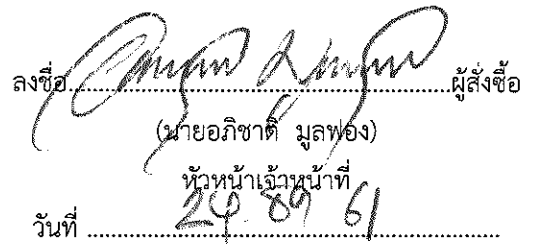 ลงชื่อ....................................................ผู้สั่งซื้อ
(นายอภิชาติ มูลฟอง)
หัวหน้าเจ้าหน้าที่
วันที่ .......................................................... 61